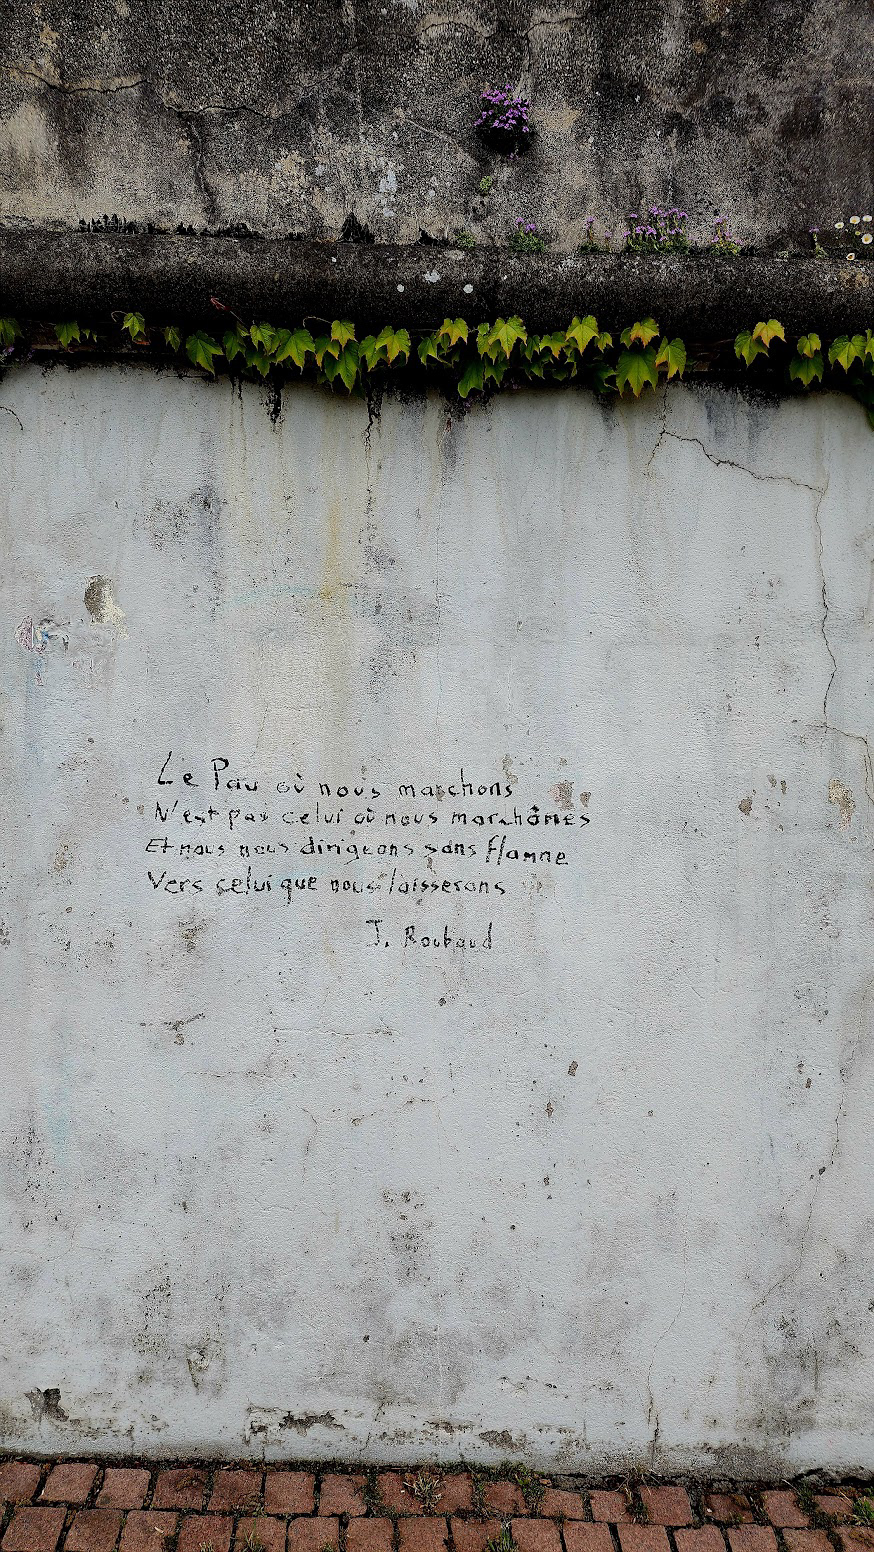 Le Pau où nous marchons
N'est pas celui où nous marchâmes
Et nous nous dirigeons sans flamme
Vers celui que nous laisserons
J. Roubaud